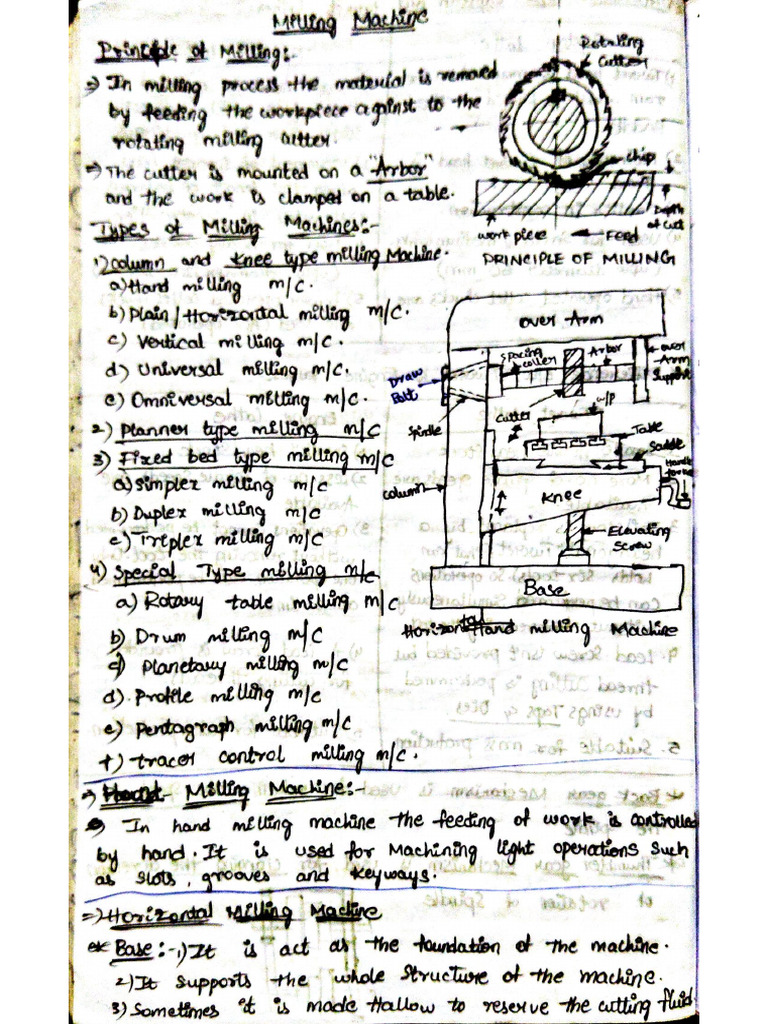 Milling Machine
Principle of Milling:-
=) In milling process the material is removed
by feeding the workpiece against to the
rotating milling cutter.
=) The cutter is mounted on a "Arbor"
and the work is clamped on a table.
Rotating
cutter
chip
Depth
of cut
work piece
Feed
PRINCIPLE OF MILLING
Types of Milling Machines:-
1) column and Knee type milling Machine.
a) Hand milling m/c.
b) Plain/Horizontal milling m/c.
c) Vertical milling m/c.
d) Universal milling m/c.
e) Omniversal milling m/c.
2) Planner type milling m/c
3) Fixed bed type milling m/c
a) Simplex milling m/c
b) Duplex milling m/c
c) Triplex milling m/c
4) Special Type milling m/c
a) Rotary table milling m/c
b) Drum milling m/c
c) Planetary milling m/c
d) Profile milling m/c
e) Pentagraph milling m/c
f) tracer control milling m/c.
over Arm
Spacing
coller
Arbor
over
Arm
Support
Draw
Bolt
Spindle
cutter
w/p
Table
Saddle
column
Knee
Elevating
Screw
Base
Horizontal milling Machine
=) Hand Milling Machine:-
In hand milling machine the feeding of work is controlled
by hand. It is used for Machining light operations such
as slots, grooves and keyways.
=) Horizontal Milling Machine
* Base:- 1) It is act as the foundation of the machine.
2) It supports the whole structure of the machine.
3) Sometimes it is made Hallow to reserve the cutting fluid